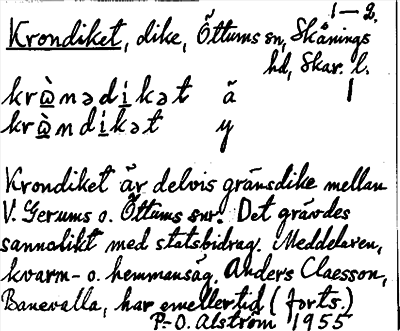 1–2.
Krondiket, dike, Öttums sn, Skånings
hd, Skar. l.
krὼnədi̱kət ä 1
krὼndi̱kət y
Krondiket är delvis gränsdike mellan
V. Gerums o. Öttums snr. Det grävdes
sannolikt med statsbidrag. Meddelaren,
kvarn- o. hemmansäg. Anders Claesson,
Banevalla, har emellertid (forts.)
P-O. Alström 1955